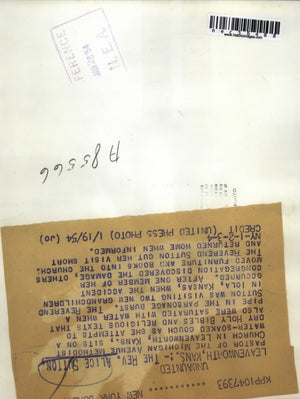 REFERENCE
JAN 25 '54
N.E.A.
A 85566
KPP1047393
NEW YORK
UNWANTED
LEAVENWORTH, KANS.:- THE REV. ALICE SUTTON,
PASTOR OF THE MICHIGAN AVENUE METHODIST
CHURCH IN LEAVENWORTH, KANS., SITS ON A
WATER-SOAKED COUCH AS SHE ATTEMPTS TO
DRY HOLY BIBLES AND RELIGIOUS TEXTS THAT
ALSO WERE SATURATED WITH WATER WHEN A
PIPE IN THE PARSONAGE BURST. THE REVEREND
SUTTON WAS VISITING TWO NEW GRANDCHILDREN
IN IOLA, KANSAS, WHEN THE ACCIDENT
OCCURRED. AFTER ONE MEMBER OF HER
CONGREGATION DISCOVERED THE DAMAGE, OTHERS
MOVED FURNITURE AND BOOKS INTO THE CHURCH.
THE REVEREND SUTTON CUT HER VISIT SHORT
AND RETURNED HOME WHEN INFORMED.
NY-1-2-3-4
CREDIT (UNITED PRESS PHOTO) 1/19/54 (JO)